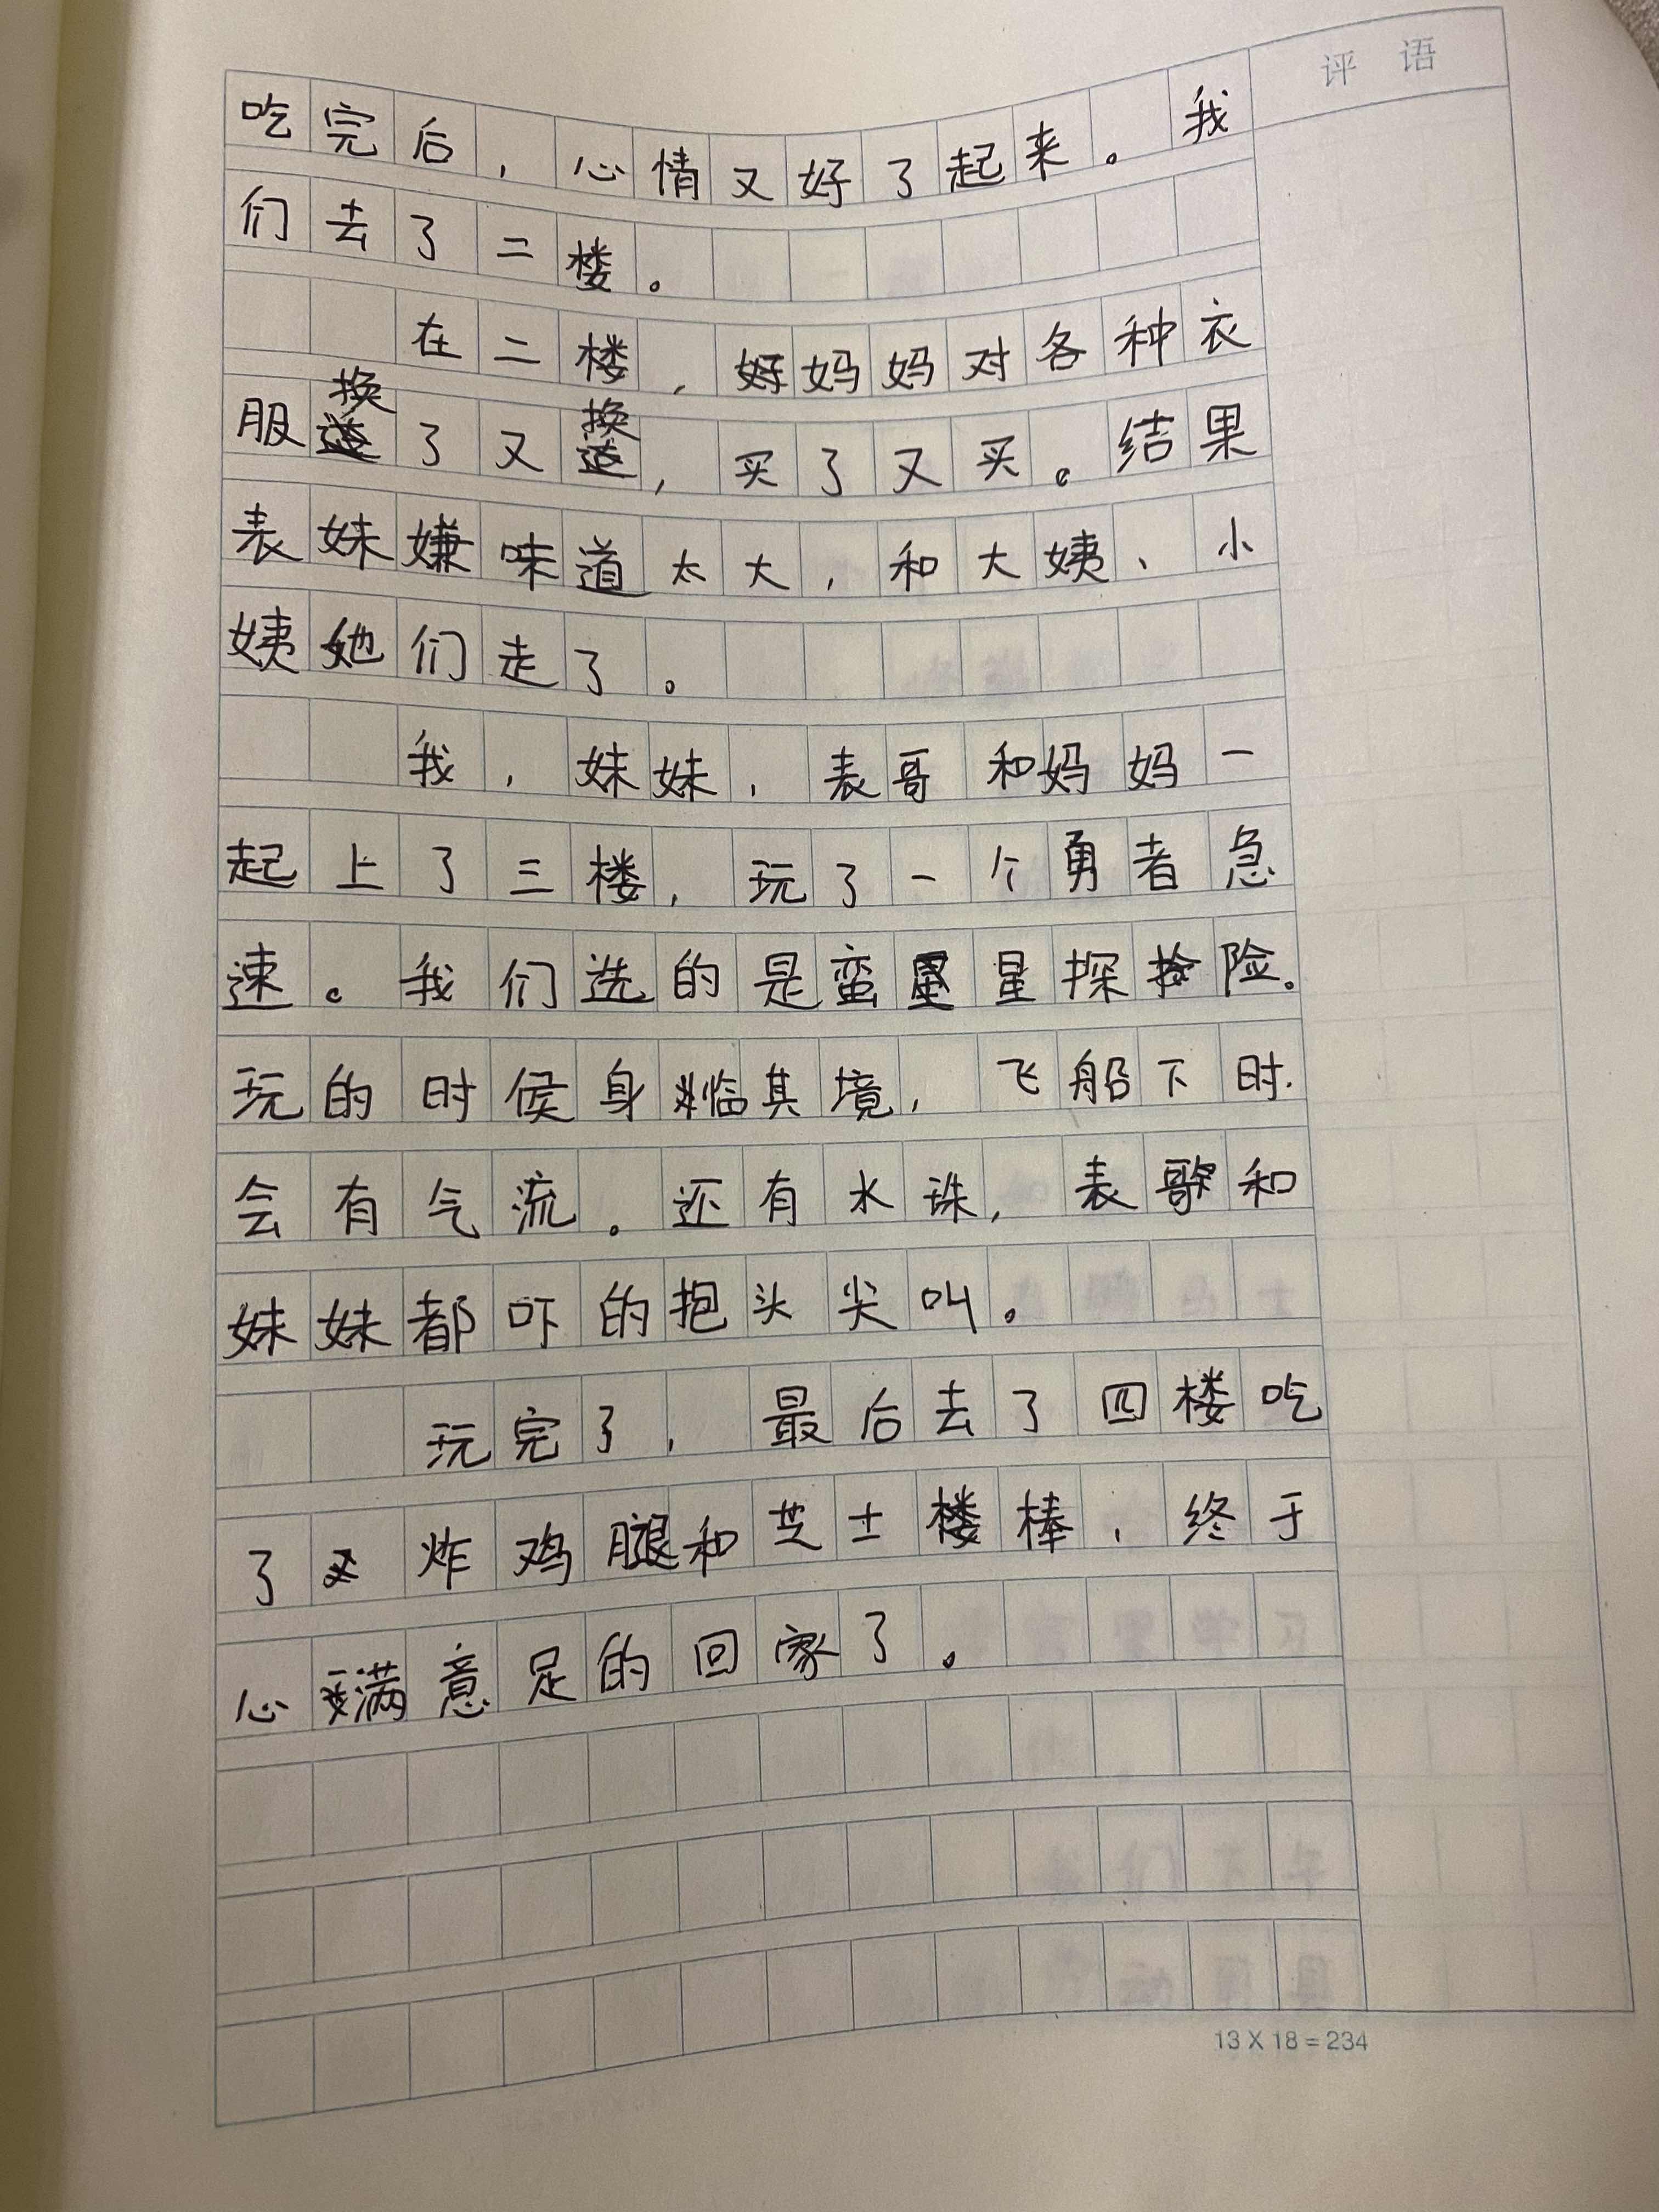 评语
吃完后，心情又好了起来。我
们去了二楼。
在二楼，妈妈对各种衣
换 换
服了又，买了又买。结果
表妹嫌味道太大，和大姨、小
姨她们走了。
我，妹妹，表哥和妈妈一
起上了三楼，玩了一个勇者急
速。我们选的是蛮星探险。
玩的时侯身临其境，飞船下时
会有气流。还有水珠，表歌和
妹妹都吓的抱头尖叫。
玩完了，最后去了四楼吃
了炸鸡腿和芝士棒，终于
心满意足的回家了。
13 X 18 = 234